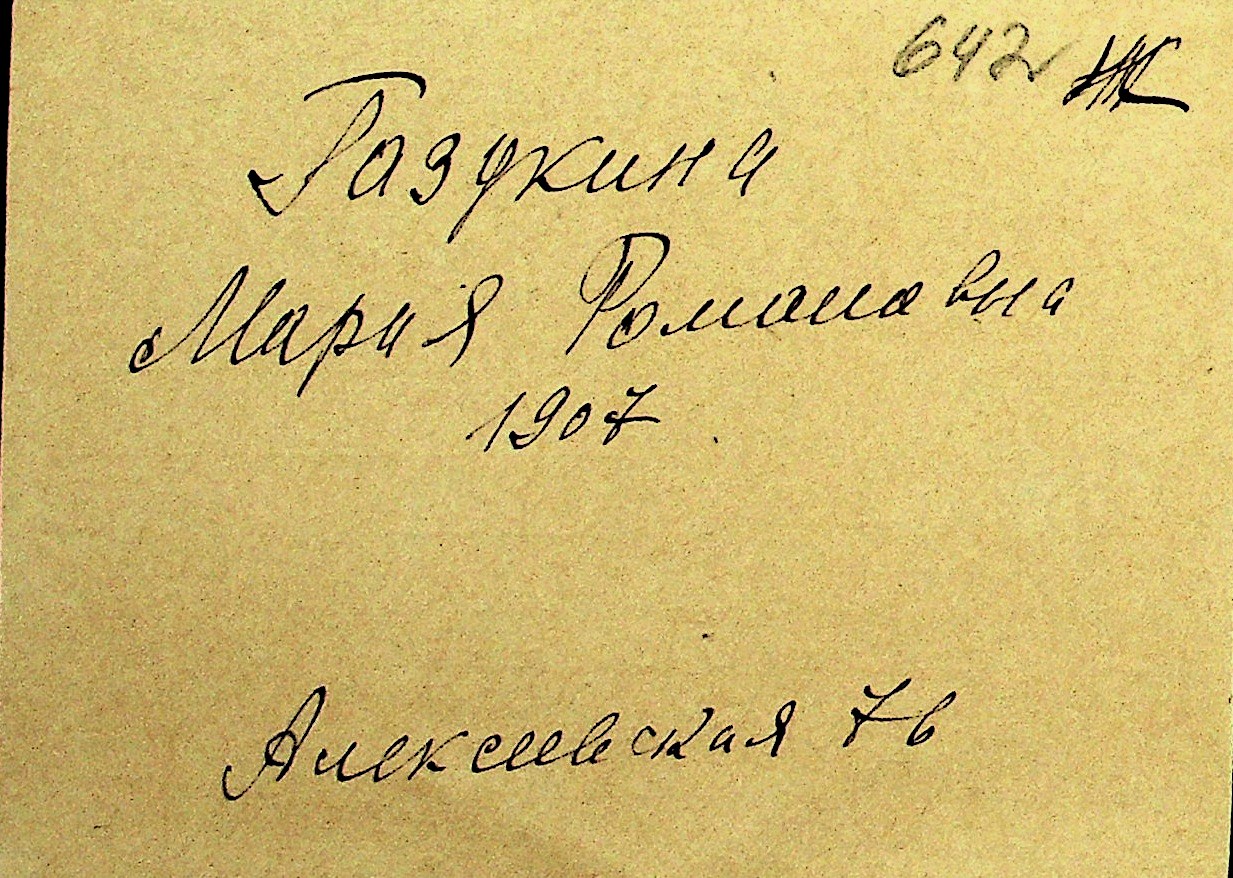 642 Ж
Газукина
Мария Романовна
1907
Алексеевская 7в